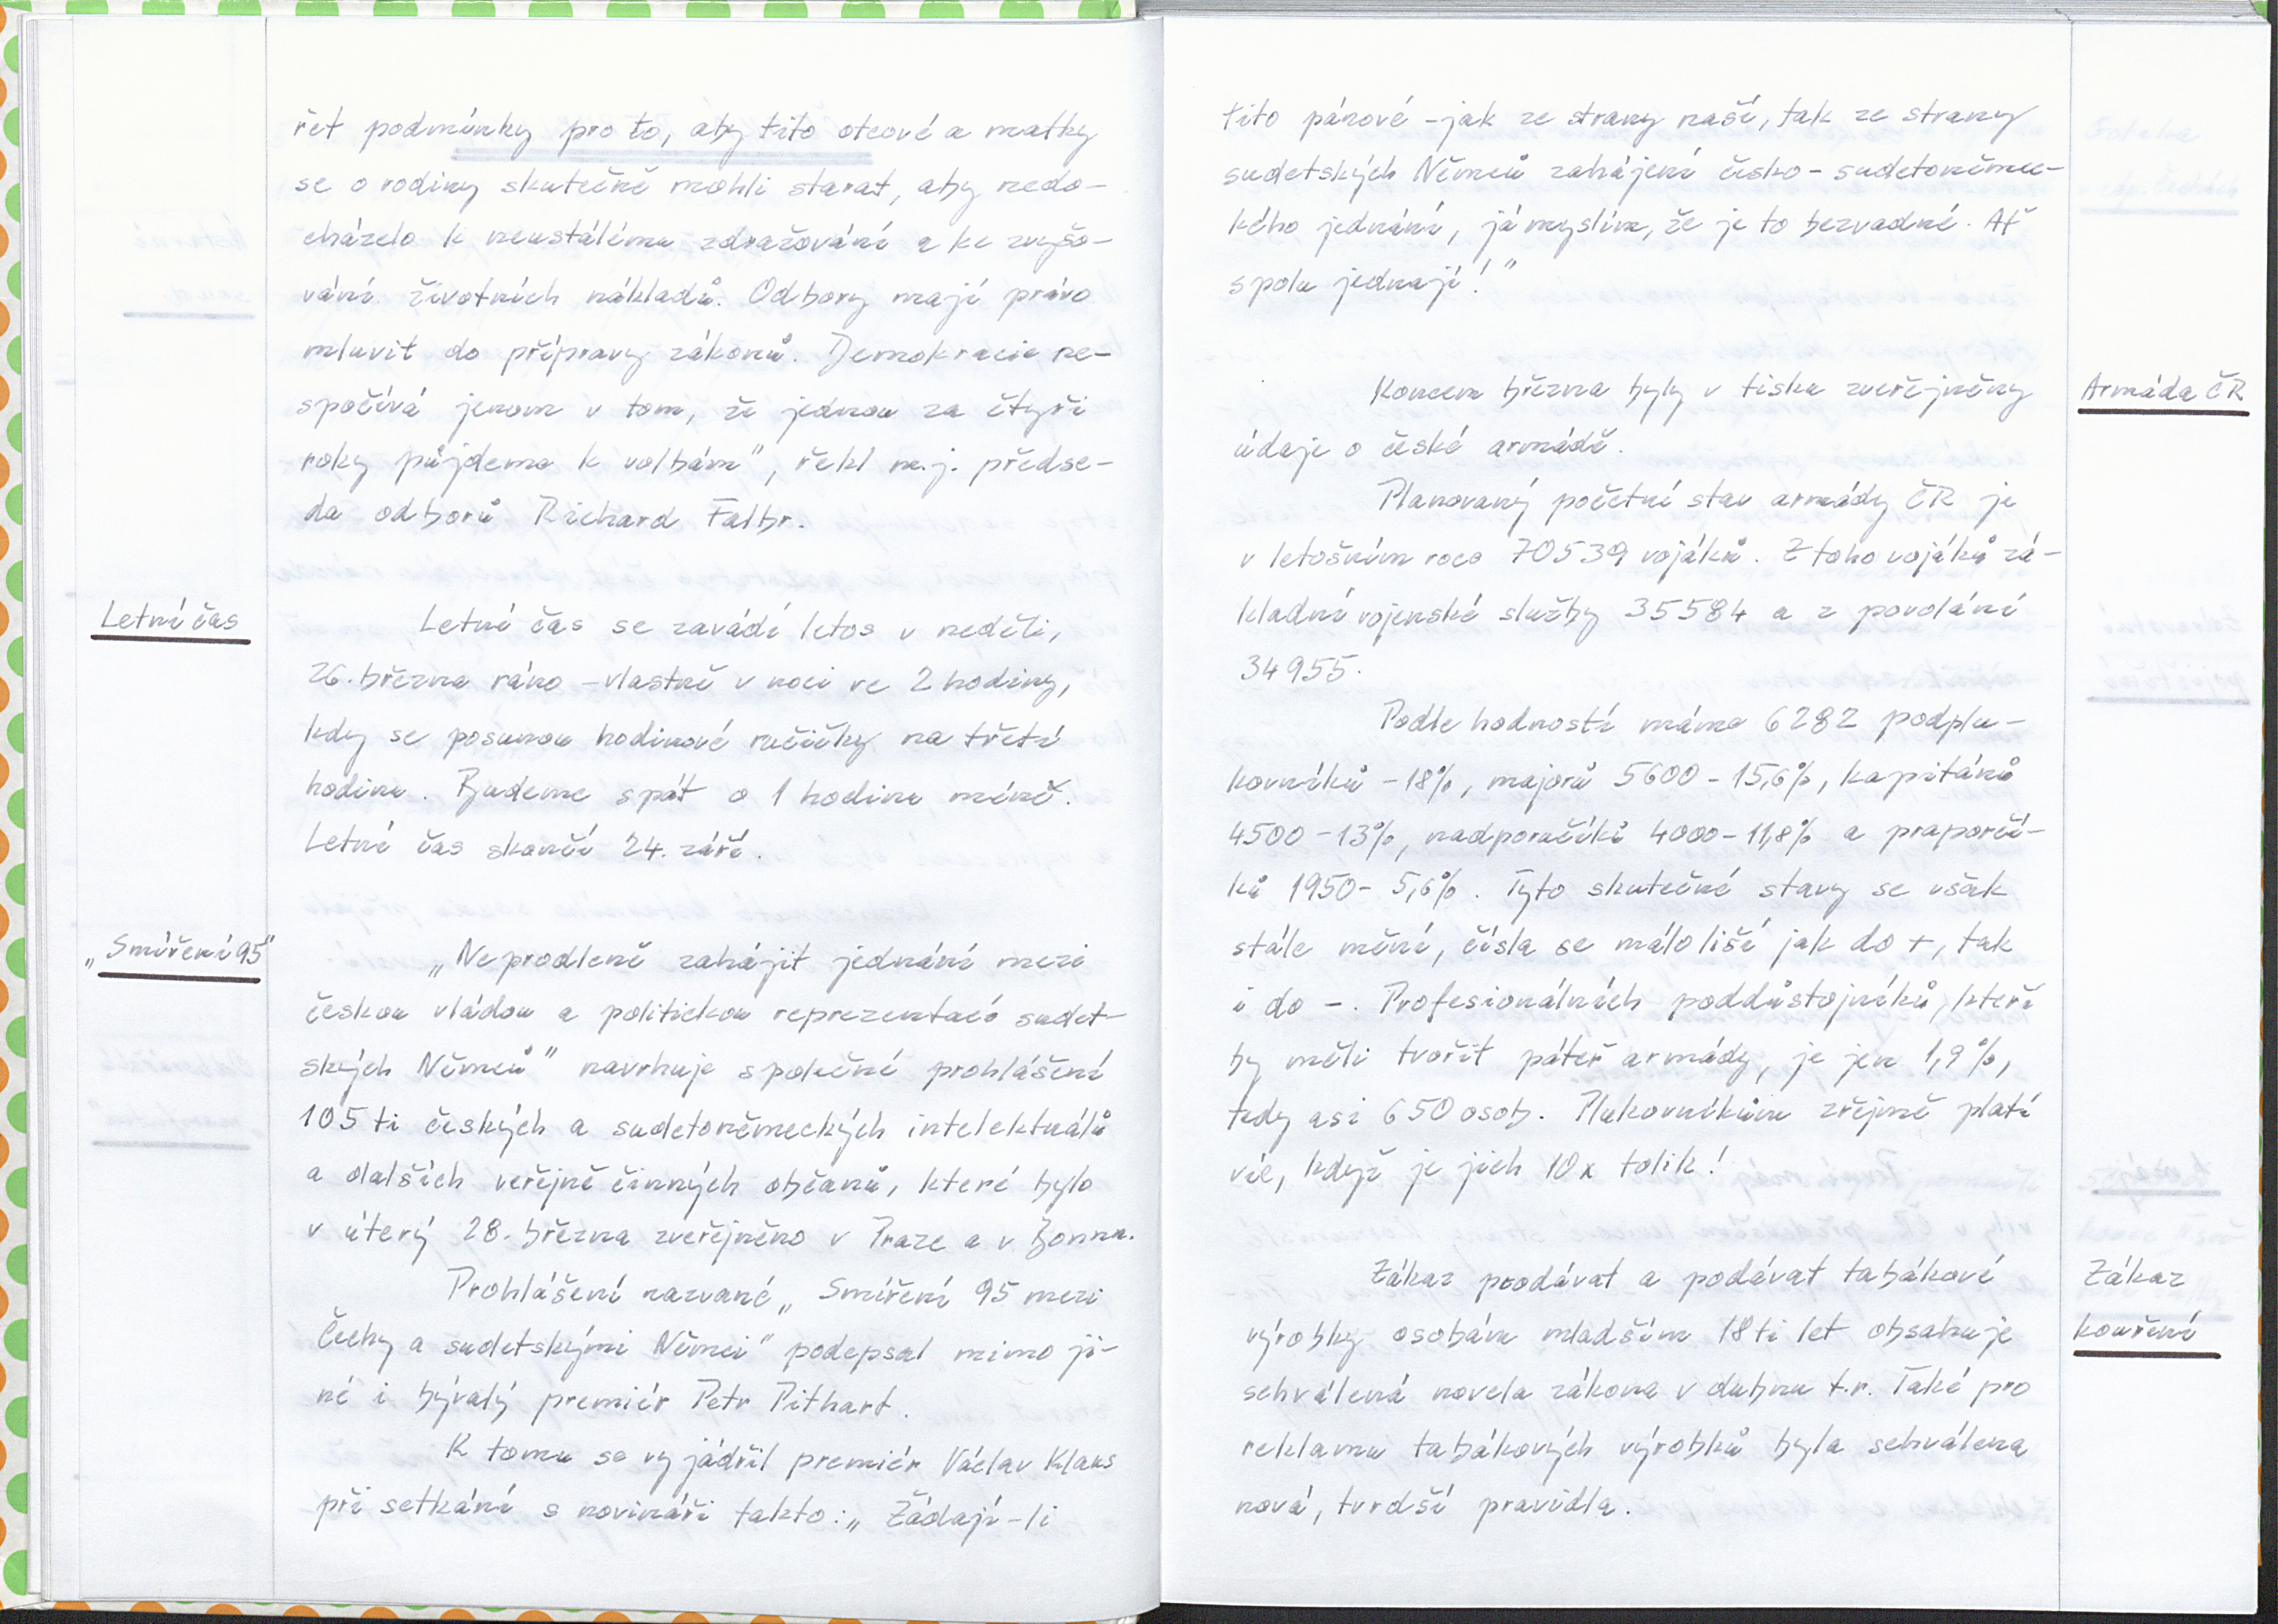 řet podmínky pro to, aby tito otcové a matky
se o rodiny skutečně mohli starat, aby nedo-
cházelo k neustálému zdražování a ke zvyšo-
vání životních nákladů. Odbory mají právo
mluvit do přípravy zákonů. Demokracie ne-
spočívá jenom v tom, že jednou za čtyři
roky půjdeme k volbám", řekl m.j. předse-
da odborů Richard Falbr.
Letní čas
Letní čas se zavádí letos v neděli,
26. března ráno - vlastně v noci ve 2 hodiny,
kdy se posunou hodinové ručičky na třetí
hodinu. Budeme spát o 1 hodinu méně.
Letní čas skončí 24. září.
„Smíření 95"
„Neprodleně zahájit jednání mezi
českou vládou a politickou reprezentací sudet-
ských Němců" navrhuje společné prohlášení
105 ti českých a sudetoněmeckých intelektuálů
a dalších veřejně činných občanů, které bylo
v úterý 28. března zveřejněno v Praze a v Bonnu.
Prohlášení nazvané „Smíření 95 mezi
Čechy a sudetskými Němci" podepsal mimo ji-
né i bývalý premiér Petr Pithart.
K tomu se vyjádřil premiér Václav Klaus
při setkání s novináři takto: „Žádají-li
tito pánové - jak ze strany naší, tak ze strany
sudetských Němců zahájení česko - sudetoněmec-
kého jednání, já myslím, že je to bezvadné. Ať
spolu jednají!"
Armáda ČR
Koncem března byly v tisku zveřejněny
údaje o české armádě.
Planovaný početní stav armády ČR je
v letošním roce 70539 vojáků. Z toho vojáků zá-
kladní vojenské služby 35584 a z povolání
34955.
Podle hodností máme 6282 podplu-
kovníků - 18%, majorů 5600 - 15,6%, kapitánů
4500 - 13%, nadporučíků 4000 - 11,8% a praporčí-
ků 1950 - 5,6%. Tyto skutečné stavy se však
stále mění, čísla se málo liší jak do +, tak
i do -. Profesionálních poddůstojníků, kteří
by měli tvořit páteř armády, je jen 1,9%,
tedy asi 650 osob. Plukovníkům zřejmě platí
víc, když je jich 10x tolik!
Zákaz
kouření
Zákaz prodávat a podávat tabákové
výrobky osobám mladším 18ti let obsahuje
schválená novela zákona v dubnu t.r. Také pro
reklamu tabákových výrobků byla schválena
nová, tvrdší pravidla.